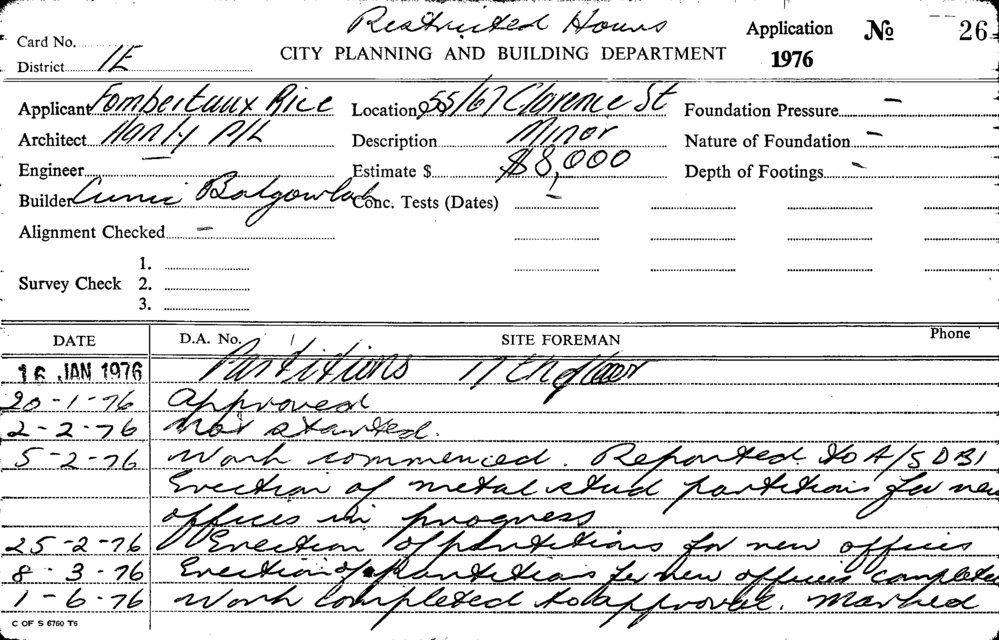 Restricted Hours
Card No. Application No 26
CITY PLANNING AND BUILDING DEPARTMENT
District 1E 1976
Applicant Fombertaux Rice Location 55/67 Clarence St Foundation Pressure –
Architect Hanly P/L Description Minor Nature of Foundation –
Engineer – Estimate $ $8,000 Depth of Footings –
Builder Balgowlah Conc. Tests (Dates) –
Alignment Checked –
1.
Survey Check 2.
3.
DATE D.A. No. SITE FOREMAN Phone
16 JAN 1976 Partitions 17th floor
20-1-76 Approved
2-2-76 Not started.
5-2-76 Work commenced. Reported to A/SDBI
Erection of metal stud partitions for new
offices in progress
25-2-76 Erection of partitions for new offices
8-3-76 Erection of partitions for new offices complete
1-6-76 Work completed to approval. Marked
C OF S 6760 T6